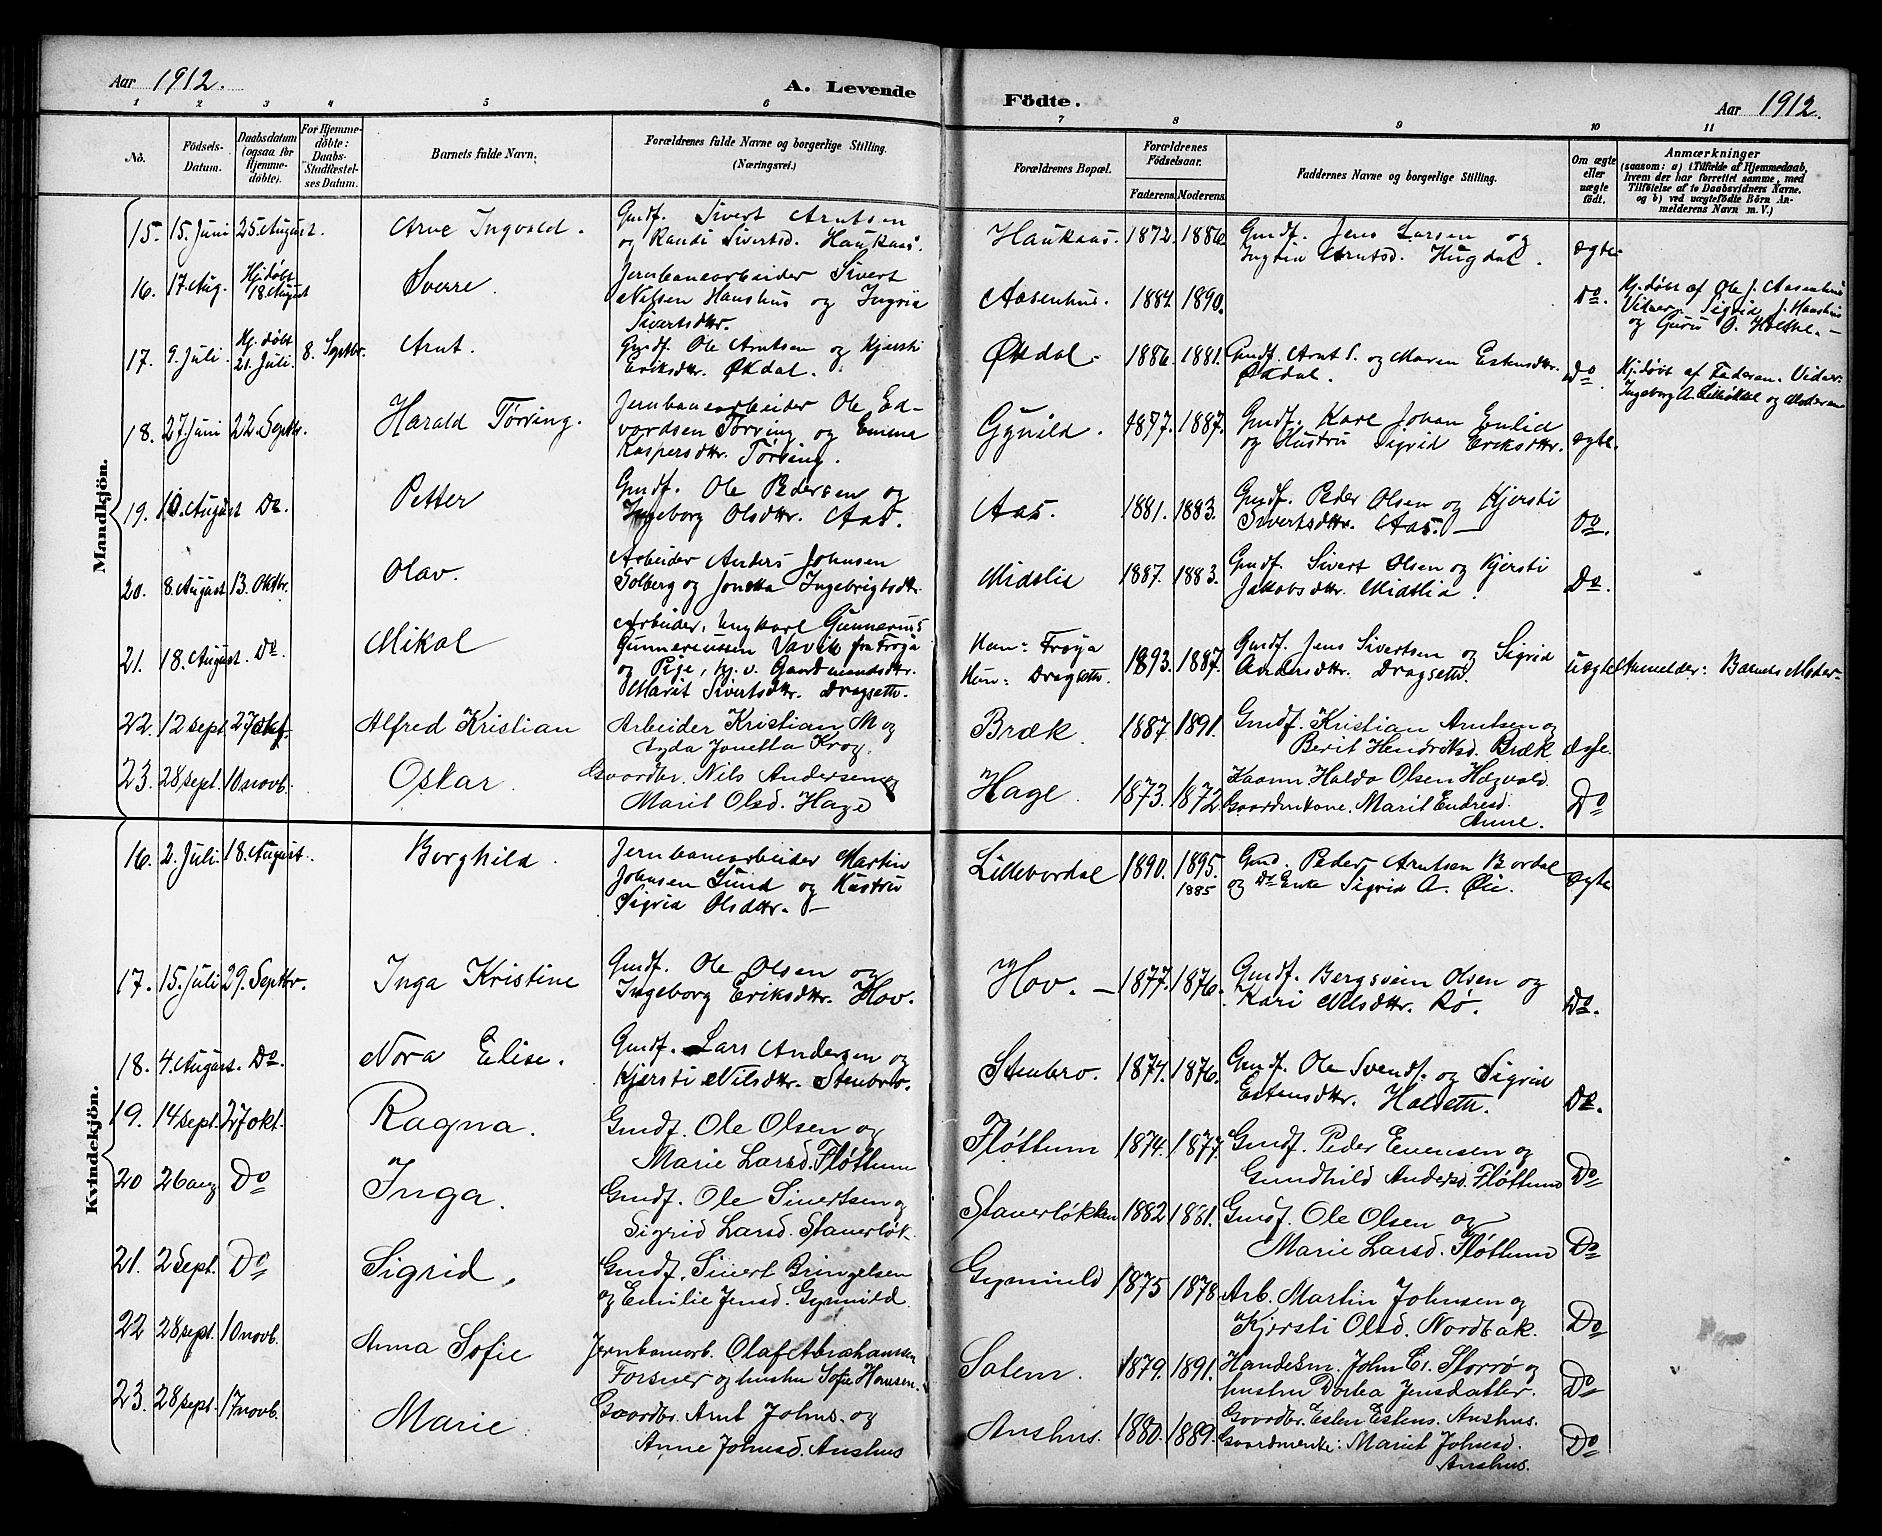 Aar 1912.
A. Levende
Födte.
Aar 1912.
1 2 3 4 5 6 7 8 9 10 11
No.
Födsels-Datum.
Daabsdatum (ogsaa for Hjemme-døbte).
For Hjemme-døbte: Daabs-Stadfæstel-ses Datum.
Barnets fulde Navn.
Forældrenes fulde Navne og borgerlige Stilling.
(Næringsvei.)
Forældrenes Bopæl.
Forældrenes Födselsaar.
Faderens. Moderens.
Faddernes Navne og borgerlige Stilling.
Om ægte eller uægte født.
Anmærkninger
(saasom: a) i Tilfælde af Hjemmedaab, hvem der har forrettet samme, med Tilföielse af to Daabsvidners Navne, og b) ved uægtefödte Börn An-melderens Navn m. V.)
Mandkjön.
15. 15. Juni 25. August. Arne Ingvald. Gmdf. Sivert Arntsen
og Randi Sivertsd. Haukaas. Haukaas. 1872. 1886. Gmdf. Jens Larsen og
Ingtin Arntsd. Hugdal. ægte.
16. 17. Aug. Hj. døbt 18. August Sverre. Jernbanearbeider Sivert
Nilsen Hanshus og Ingria
Sivertsdtr. Aasenhus. 1884. 1890. Do. Hj. døbt af Ole J. Aasenhus
Vidner: Sigrid J. Hanshus
og Guru O. –
17. 9. Juli. Hj. døbt 21. Juli. 8. Septbr. Arnt. Gmdf. Ole Arntsen og Kjersti
Eriksdtr. Økdal. Økdal. 1886. 1881. Gmdf. Arnt S. og Maren Estensdtr.
Økdal. Do. Hj. døbt af Faderen. Vidner:
Ingeborg A. og Moderen
18. 27 Juni 22. Septbr. Harald Tørring. Jernbanearbeider Ole Ed-
vardsen Tørring og Emma
Kaspersdtr. Tørring. Gynild. 1877. 1887. Gmdf. Karl Johan Enlid
og Hustru Sigrid Eriksdtr. ægte.
19. 10. August Do. Petter Gmdf. Ole Pedersen og
Ingeborg Olsdtr. Aas. Aas. 1881. 1883. Gmdf. Peder Olsen og Kjersti
Sivertsdtr. Aas. – Do.
20. 8. August 13. Oktbr. Olav. Arbeider Anders Johnsen
Solberg og Jonetta Ingebrigtsdtr. Midtlie 1887. 1883. Gmdf. Sivert Olsen og Kjersti
Jakobsdtr. Midtlie. Do.
21. 18. August. Do. Mikal Arbeider, Ungkarl Gunnerius
Gunneriussen Vavik fra Frøya
og Pige, hj. v. Gaardmandsdtr.
Marit Sivertsdtr. Dragseth. Han: Frøya
Hun: Dragseth. 1893. 1887. Gmdf. Jens Sivertsen og Sigrid
Andersdtr. Dragseth. uægte Anmelder: Barnets Moder–
22. 12 sept 27 okt. Alfred Kristian Arbeider Kristian M og
Lyda Jonetta Krog. Bræk 1887 1891. Gmdf. Kristian Arntsen og
Berit Hendriksd. Bræk ægte.
23. 28 sept. 10 novb. Oskar. Gaardbr. Nils Andersen og
Marit Olsd. Hage Hage. 1873. 1872. Kaarm Haldo Olsen Hægvald.
Gaardmkone. Marit Endresd.
Anne. Do
Kvindekjön.
16. 2. Juli. 18. August. Borghild. Jernbanearbeider Martin
Johnsen Sund og Hustru
Sigrid Olsdtr. – Lillebordal 1890. 1895.
1885 Gmd. Peder Arntsen Bordal
og Do Enke Sigrid A. Øie. ægte
17. 15. Juli 29. Septbr. Inga Kristine Gmdf. Ole Olsen og
Ingeborg Eriksdtr. Hov. Hov. – 1877. 1876. Gmdf. Bergsvein Olsen og
Kari Nilsdtr. Rø. Do.
18. 4. August. Do. Nora Elise. Gmdf. Lars Andersen og
Kjersti Nilsdtr. Stenbro. Stenbro. 1874. 1876. Gmdf. Ole Svends. og Sigrid
Estensdtr. Halseth. Do.
19. 14 sept. 27 okt. Ragna. Gmdf. Ole Olsen og
Marie Larsd. Fløttum Fløttum 1874. 1877. Gmdf. Peder Evensen og
Gundhild Andersd. Fløttum Do
20 26 aug Do Inga. Gmdf. Ole Sivertsen og
Sigrid Larsd. Staverløk. Staverløkken 1882 1881. Gmdf. Ole Olsen og
Marie Larsd. Fløttum Do
21. 2 Sept. Do Sigrid. Gmdf. Sivert Bringelsen
og Emilie Jensd. Gynnild. Gynnild 1875 1878. Arb. Martin Johnsen og
Kjersti Olsd. Nordbak. Do
22 28 sept. 10 novb. Anna Sofie Jernbanearb. Olaf Abrahamsen
Forsner og hustru Sofie Hansen. Salem. 1879. 1891. Handelsm. John E. Storrø og
hustru Dortea Jensdatter. Do
23. 28 sept. 17 novb. Marie. Gaardbr. Arnt Johns. og
Anne Johnsd. Anshus Anshus. 1880. 1889. Gaardbr. Esten Estens. Anshus.
Gaardmenke: Marit Johnsd.
Anshus. Do